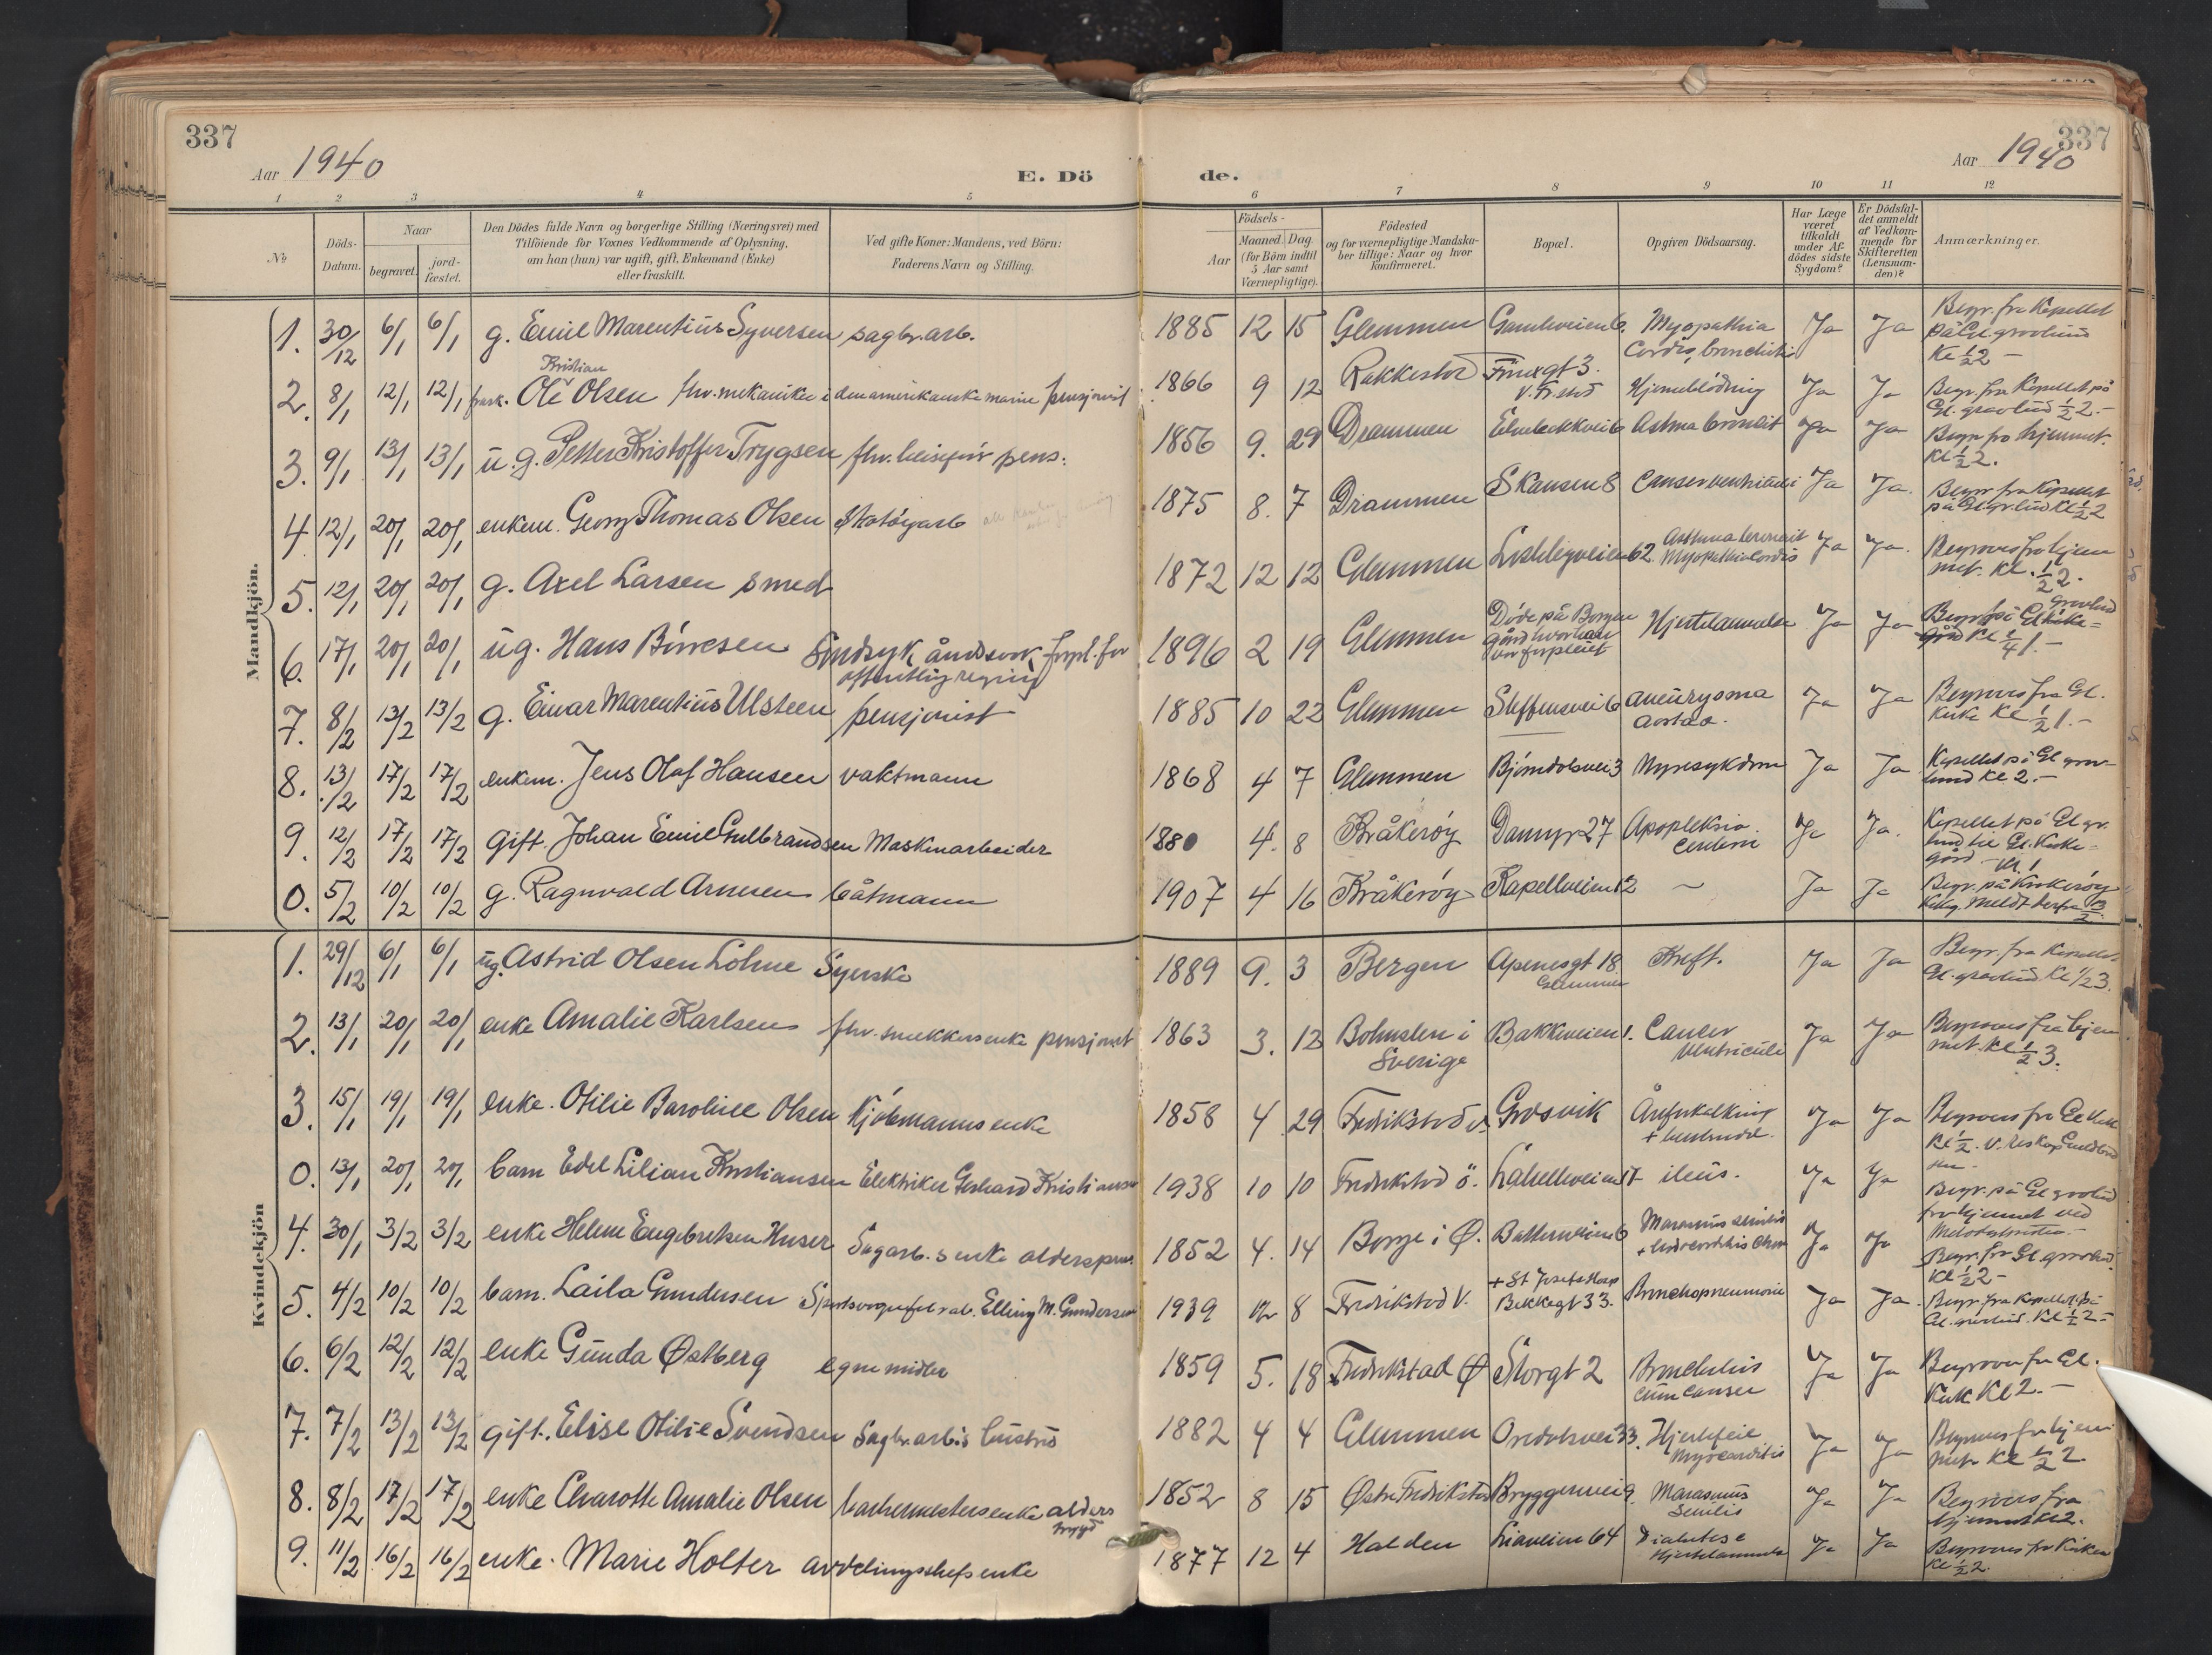 337
Aar 1940
E. Dö
de.
Aar 1940
337
1 2 3 4 5 6 7 8 9 10 11 12
No
Döds-
Datum.
Naar
begravet.
jord-
fæstet.
Den Dödes fulde Navn og borgerlige Stilling (Næringsvei) med
Tilföiende for Voxnes Vedkommende af Oplysning,
om han (hun) var ugift, gift, Enkemand (Enke)
eller fraskilt.
Ved gifte Koner: Mandens, ved Börn:
Faderens Navn og Stilling.
Födsels-
Aar
Maaned.
Dag
(for Börn indtil
5 Aar samt
Værnepligtige).
Födested
og for værnepligtige Mandska-
ber tillige: Naar og hvor
konfirmeret.
Bopæl.
Opgiven Dödsaarsag.
Har Læge
været
tilkaldt
under Af-
dödes sidste
Sygdom?
Er Dödsfal-
det anmeldt
af Vedkom-
mende for
Skifteretten
(Lensman-
den)?
Anmærkninger.
Mandkjön.
1. 30/12 6/1 6/1 g. Emil Marentius Syversen sagbr.arb. 1885 12 15 Glemmen Gamleveien 6. Myopathia Ja Ja Begr. fra Kapellet
Cordis, bronchitis på Gl. gravlund
Kl ½ 2 –
Kristian
2. 8/1 12/1 12/1 frask. Ole Olsen fhv. mekaniker i den amerikanske marine pensjonist 1866 9 12 Rakkestad 3. Hjerneblödning Ja Ja Begr. fra Kapellet på
V. Fr.stad Gl. gravlund ½ 2. –
3. 9/1 13/1 13/1 u.g. Petter Kristoffer Trygsen fhv. pens. 1856 9. 29 Drammen Astma bronkit Ja Ja Begr. fra hjemmet.
Kl ½ 2.
4 12/1 20/1 20/1 enkem. Georg Thomas Olsen Skotöyarb 1875 8. 7 Drammen Skansen 8 Canser ventriculi Ja Ja. Begr. fra Kapellet
på Gl. gr.lund Kl ½ 2
5. 12/1 20/1 20/1 g. Axel Larsen smed 1872 12 12 Glemmen Lislebyveien 62. Asthma bronkit Ja Ja. Begraves fra hjem
Myopathia Cordis met. Kl. ½ 2.
6. 17/1 20/1 20/1 ug. Hans Börresen Sindsyk åndssvak forpl. for 1896 2 19 Glemmen Döde på Borgen Hjertelammelse Ja Ja Begr. på Gl kirke=
offentlig regning gård hvor han gård Kl ¼ 1. –
var forpleiet Gravlund
7. 8/2 13/2 13/2 g. Einar Marentius Ulsteen pensjonist 1885 10 22 Glemmen Steffensvei 6 aneurysma Ja Ja Begraves fra Gl.
aortae. Kirke Kl ½ 1. –
8. 13/2 17/2 17/2 enkem. Jens Olaf Hansen vaktmann 1868 4 7 Glemmen Björndalsvei 3 Nyresykdom Ja Ja Kapellet på Gl grav-
lund Kl 2. –
9. 12/2 17/2 17/2 gift. Johan Emil Gulbrandsen Maskinarbeider 1880 4. 8 Kråkeröy Dammyr 27 Apopleksia Ja Ja. Kapellet på Gl gr.
lund til Gl. Kirke=
gård – Kl 1
0. 5/2 10/2 10/2 g. Ragnvald Arnesen båtmann 1907 4 16 Kråkeröy Kapellveien 12 ~ Ja Ja Begr. på Kråkeröy
Kirkeg. meldt derfra 13/2.
Kvindekjön
1. 29/12 6/1 6/1 ug. Astrid Olsen Lohne Syerske 1889 9. 3 Bergen Apenesgt 18. Kreft. Ja Ja Begr. fra Kapellet
Glemmen Gl. gravlund Kl 1/2 3.
2. 13/1 20/1 20/1 enke Amalie Karlsen fhv. snekkers enke pensjonist 1863 3. 12 Bohuslen i Bakkeveien 1. Cancer Ja Ja Begraves fra hjem
Sverige Ventriculi met. Kl ½ 3.
3. 15/1 19/1 19/1 enke. Otilie Baroline Olsen Kjöbmanns enke 1858 4 29 Fredrikstad V. Gresvik Åreforkalkning Ja Ja Begraves fra Gl Kirke
Kl ½.
0. 13/1 20/1 20/1 barn Edel Lilian Kristiansen Elektriker Gerhard Kristiansen 1938 10 10 Fredrikstad ö. Labellveien 17 ileus. Ja Ja Begr. på Gl gravlund
fra hjemmet ved
4. 30/1 3/2 3/2 enke Helene Engebretsen Huser Sagarb.s enke alderspens. 1852 4. 14 Borge i Ø. Batteriveien 6 Marasmus senilis Ja Ja Begr. fra Gl gravlund
Kl ½ 2 –
5. 4/2 10/2 10/2 barn. Laila Gundersen Elling M. Gundersen 1939 12 8 Fredrikstad V. + St Josefs Hosp Bronchopneumonie Ja Ja. Begr. fra Kapellet på
Bekkegt 33. Gl. gravlund. Kl ½ 2 –
6. 6/2 12/2 12/2 enke Gunda Østberg egne midler 1859 5. 18 Fredrikstad Ø Storgt 2 Bronchitis Ja Ja Begraves fra Gl.
cum canser Kirk Kl 2. –
7. 7/2 13/2 13/2 gift. Elise Otilie Svendsen Sagbr.arb.s hustru 1882 4 4 Glemmen Oredalsvei 33. Hjertefeil Ja Ja Begraves fra hjem
myocarditis met Kl ½ 2
8. 8/2 17/2 17/2 enke Charotte Amalie Olsen barbermesters enke alders 1852 8 15 Østre Fredrikstad Bryggeriveien 9. Marasmus Ja Ja Begraves fra
trygd Senilis hjemmet Kl 2.
9. 11/2 16/2 16/2 enke. Marie Holter avdelingsshefs enke 1877 12 4 Halden Liaveien 64 Diabetes e Ja Ja Begraves fra Kirken
Hjertelammelse Kl ½ 2.